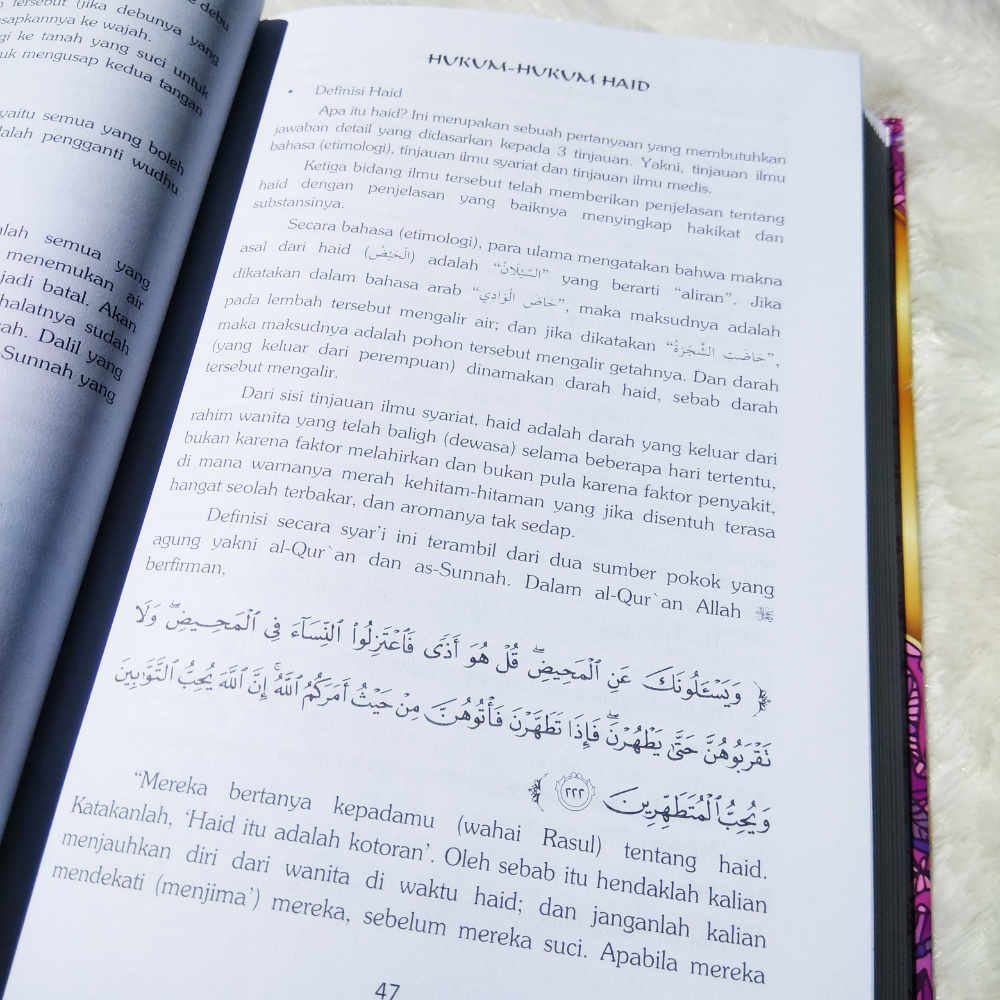 tersebut (jika debunya yang
sapkannya ke wajah.
gi ke tanah yang suci untuk
uk mengusap kedua tangan
yaitu semua yang boleh
dalah pengganti wudhu
lah semua yang
menemukan air
jadi batal. Akan
halatnya sudah
ah. Dalil yang
-Sunnah yang
HUKUM-HUKUM HAID
• Definisi Haid
Apa itu haid? Ini merupakan sebuah pertanyaan yang membutuhkan
jawaban detail yang didasarkan kepada 3 tinjauan. Yakni, tinjauan ilmu
bahasa (etimologi), tinjauan ilmu syariat dan tinjauan ilmu medis.
Ketiga bidang ilmu tersebut telah memberikan penjelasan tentang
haid dengan penjelasan yang baiknya menyingkap hakikat dan
substansinya.
Secara bahasa (etimologi), para ulama mengatakan bahwa makna
asal dari haid (الْحَيْضُ) adalah “السَّيَلَانُ” yang berarti “aliran”. Jika
dikatakan dalam bahasa arab “حَاضَ الْوَادِي”, maka maksudnya adalah
pada lembah tersebut mengalir air; dan jika dikatakan “حَاضَتِ الشَّجَرَةُ”,
maka maksudnya adalah pohon tersebut mengalir getahnya. Dan darah
(yang keluar dari perempuan) dinamakan darah haid, sebab darah
tersebut mengalir.
Dari sisi tinjauan ilmu syariat, haid adalah darah yang keluar dari
rahim wanita yang telah baligh (dewasa) selama beberapa hari tertentu,
bukan karena faktor melahirkan dan bukan pula karena faktor penyakit,
di mana warnanya merah kehitam-hitaman yang jika disentuh terasa
hangat seolah terbakar, dan aromanya tak sedap.
Definisi secara syar’i ini terambil dari dua sumber pokok yang
agung yakni al-Qur`an dan as-Sunnah. Dalam al-Qur`an Allah ﷻ
berfirman,
﴿ وَيَسْـَٔلُونَكَ عَنِ ٱلْمَحِيضِ ۖ قُلْ هُوَ أَذًى فَٱعْتَزِلُوا۟ ٱلنِّسَآءَ فِى ٱلْمَحِيضِ ۖ وَلَا
تَقْرَبُوهُنَّ حَتَّىٰ يَطْهُرْنَ ۖ فَإِذَا تَطَهَّرْنَ فَأْتُوهُنَّ مِنْ حَيْثُ أَمَرَكُمُ ٱللَّهُ ۚ إِنَّ ٱللَّهَ يُحِبُّ ٱلتَّوَّٰبِينَ
وَيُحِبُّ ٱلْمُتَطَهِّرِينَ ٢٢٢ ﴾
“Mereka bertanya kepadamu (wahai Rasul) tentang haid.
Katakanlah, ‘Haid itu adalah kotoran’. Oleh sebab itu hendaklah kalian
menjauhkan diri dari wanita di waktu haid; dan janganlah kalian
mendekati (menjima’) mereka, sebelum mereka suci. Apabila mereka
47